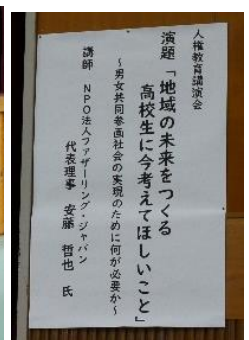 人権教育講演会
演題「地域の未来をつくる
高校生に今考えてほしいこと」
～男女共同参画社会の実現のために何が必要か～
講師　ＮＰＯ法人ファザーリング・ジャパン
代表理事　安藤　哲也　氏